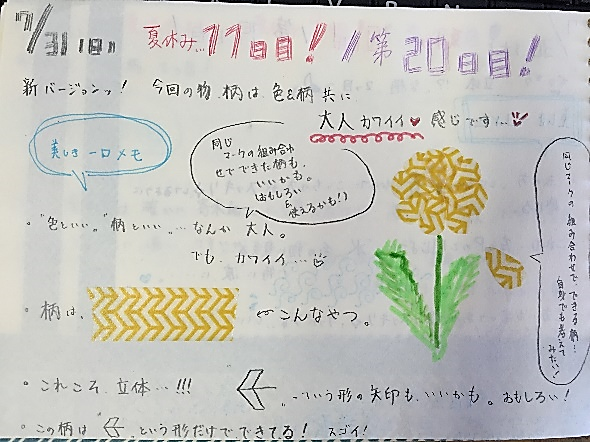 7/31(日) 夏休み…11日目!/第20日目!
新バージョンッ! 今回の物、柄は、色&柄共に
大人カワイイ♥感じです…♥
美しき一口メモ
同じ
マークの組み合わ
せでできた柄も、
いいかも。
(おもしろい
&
使えるかも!)
同じマークの組み合わせで、できる柄…
自身でも考えて
みたい!
。"色といい。"柄といい。…なんか大人。
でも、カワイイ…♡
。柄は、 ←こんなやつ。
。これこそ、立体…!!! …という形の矢印も、いいかも。おもしろい!
。この柄は、 という形だけでできてる! スゴイ!